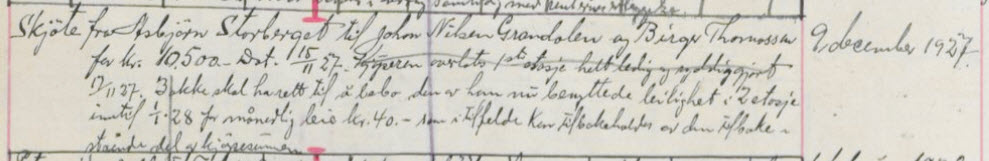 Skjöte fra Asbjörn Storberget til Johan Nilsen Grandalen og Birger Thomassen
for kr. 10,500.- Dat. 15/11 27. Kjøperen overlots 1ste etasje helt ledig og ryddiggjort
17/11 27. skal ha rett til å bebo den av ham nu benyttede leilighet i 2 etasje
inntil 1/5-28 for månedlig leie kr. 40.- som i tilfelde kan tilbakeholdes av den tilbake-
stående del av kjøpesummen
9 december 1927.